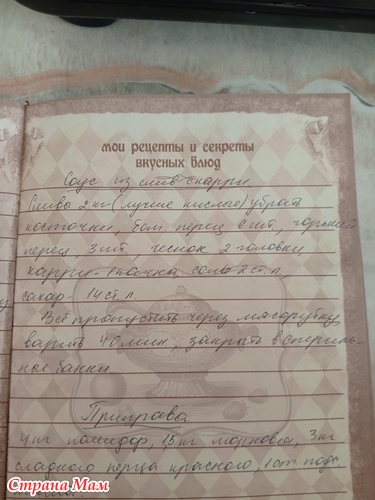 мои рецепты и секреты
вкусных блюд
Соус из слив с карри
Сливы 2 кг (лучше кислые) убрать
косточки, бол. перец 2 шт, горький
перец 3 шт, чеснок 2 головки,
карри - 1 пачка, соль 2 ст. л,
сахар - 14 ст. л.
Всё пропустить через мясорубку
варить 40 мин, закрать в стериль-
ные банки.
Приправа
4 кг помидор, 1,5 кг морковки, 3 кг
сладкого перца красного, 1 ст. подс.
Страна Мам